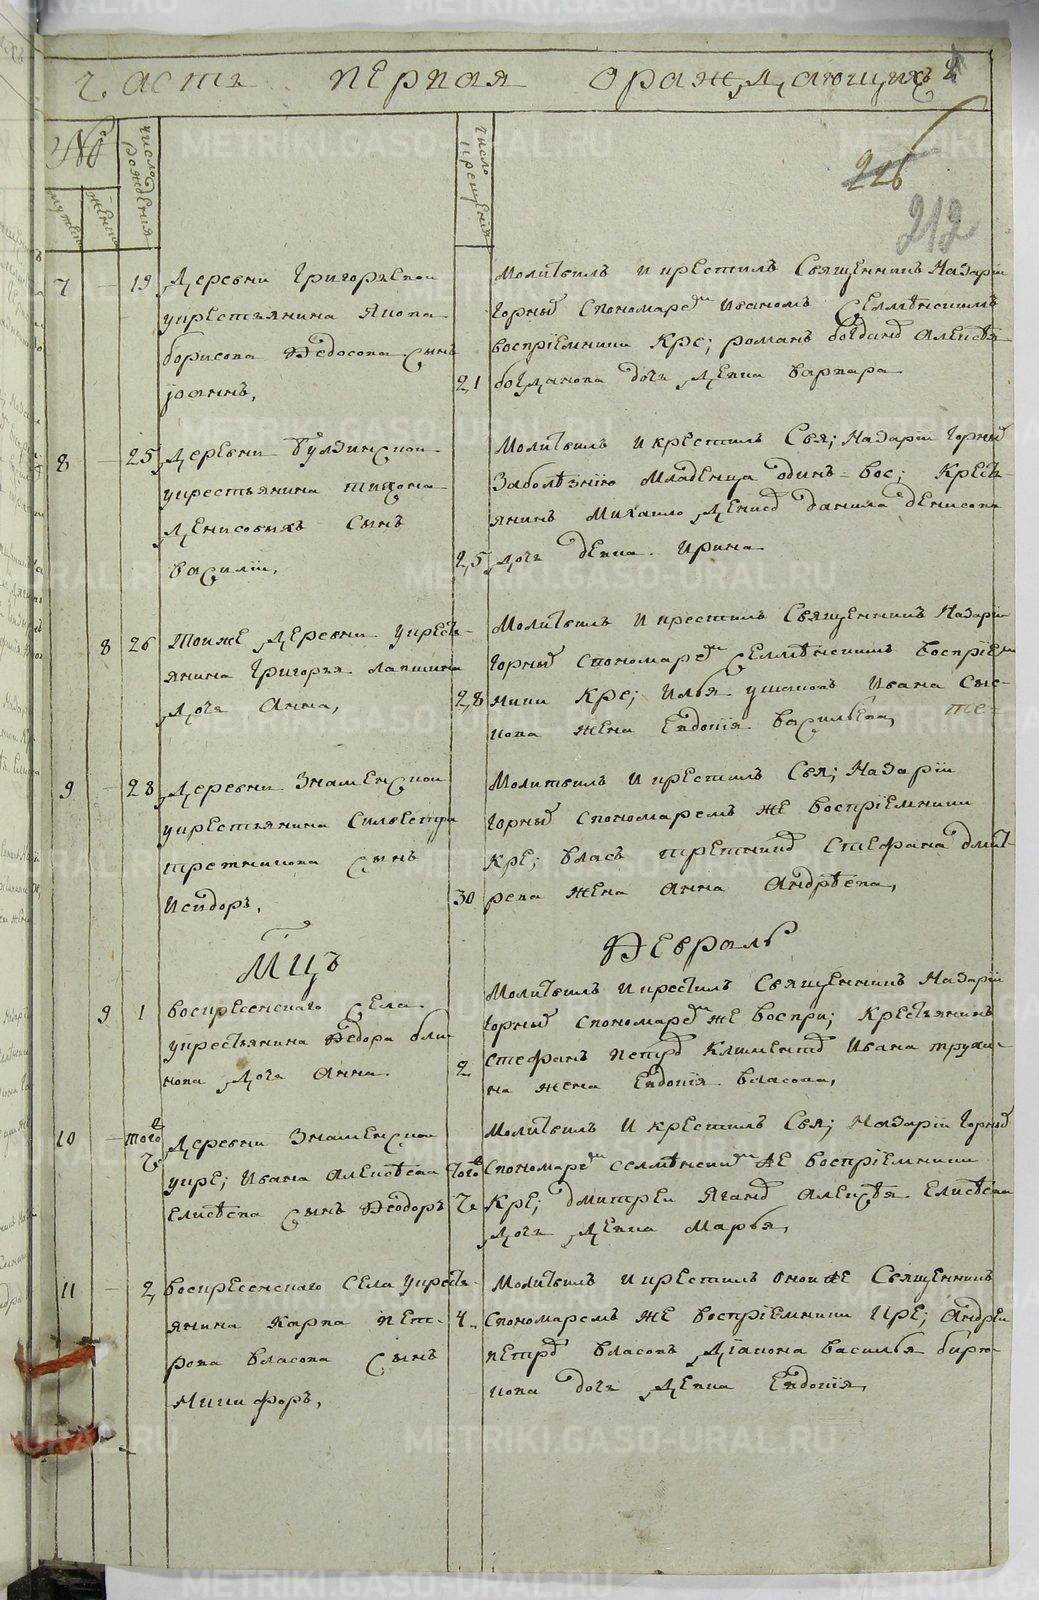 Часть первая ораждающихъ
№
мужеска
женска
число рождения
число крещения
226
212
7
19
Деревни Григорьевои
укрестьянина Якова
борисова Федосова сынъ
іоаннъ,
21
Молитвилъ и крестилъ Священникъ Назарій
Горныи Спономаремъ Иваномъ Селлменскимъ
воспріемники Кре; романъ богданъ Алексѣя
богданова дочь девка варвара
8
25
Деревни Булзинскои
укрестьянина тихона
Денисовыхъ сынъ
Василіи,
25
Молитвилъ и крестилъ Свя; Назаріи Горныи
Заболѣзнію младенца одинъ вос; Кресть-
янинъ Михаило Денисъ данила денисова
дочь девка Ирина
8
26
Тоиже деревни укресть-
янина Григорья лапшина
дочь Анна,
28
Молитвилъ и крестилъ Священникъ Назаріи
Горныи Спономаремъ Селлменскимъ воспріем
ники Кре; Илья ушаковъ Ивана Сы-
кова жена Евдокія Васильева,
9
28
Деревни Знаменскои
укрестьянина Силвестра
третникова сынъ
Исидоръ,
30
Молитвилъ и крестилъ Свя; Назаріи
Горныи Спономаремъ же воспріемники
Кре; власъ третникъ Стефана дмит-
рева жена Анна Андрѣева,
Мцъ
Февраль
9
1
воскресенскаго села
укрестьянина Федора бли-
нова дочь Анна
2
Молитвилъ и крестилъ Священникъ Назаріи
Горныи Спономаремъ же воспри; Крестьянинъ
Стефанъ петръ Климентъ Ивана трухи-
на жена Евдокія власова,
10
того ч
Деревни Знаменскои
укре; Ивана Алексѣева
Елисѣева сынъ Феодоръ
того ч
Молитвилъ и крестилъ Свя; Назаріи Горныи
Спономаремъ селлменскимъ же воспріемники
Кре; дмитреи Яганъ Алексѣя Елисѣева
дочь девка Марья,
11
2
воскресенскаго села укресть-
янина Карпа пет-
рова власова сынъ
Никифоръ,
4
Молитвилъ и крестилъ онои же Священникъ
Спономаремъ же воспріемники кре; Андреи
петръ власовъ Діакона василья бирю-
кова дочь девка Евдокія,